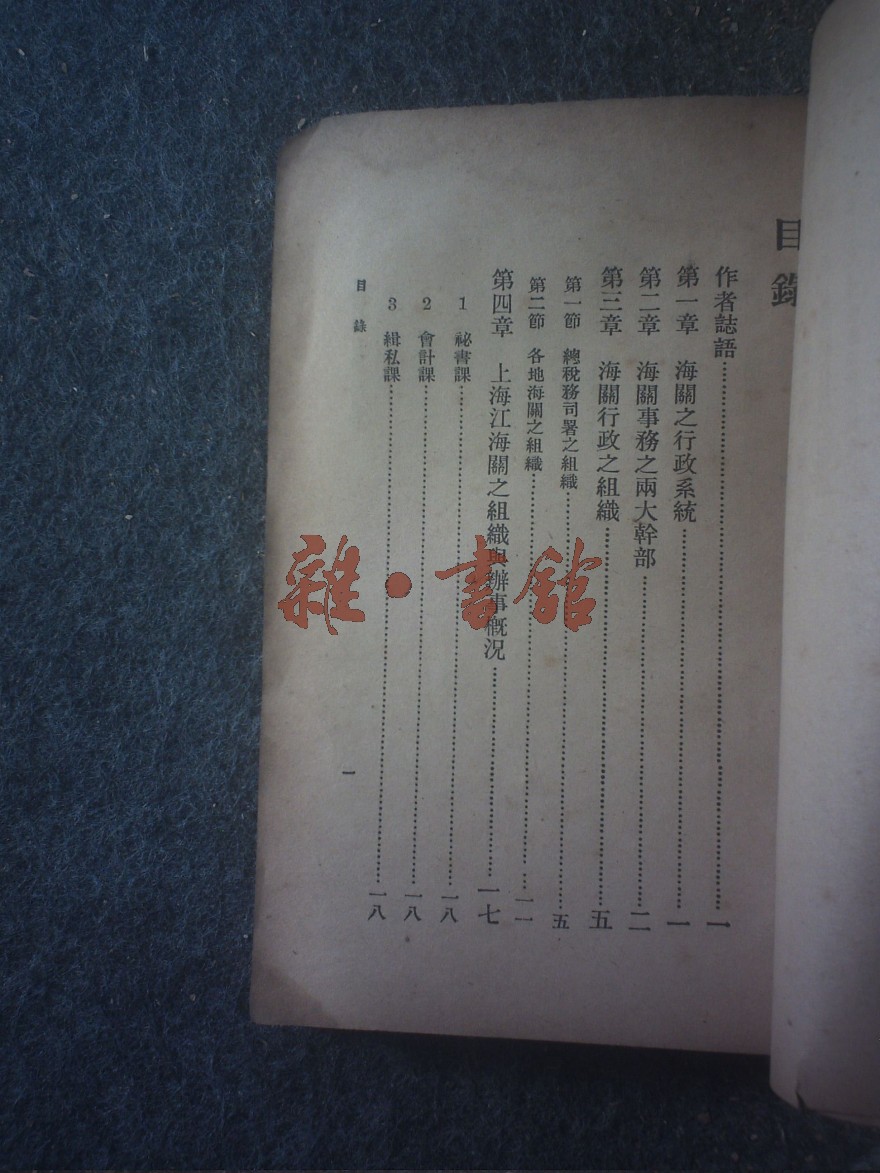 目錄
作者誌語……一
第一章 海關之行政系統……一
第二章 海關事務之兩大幹部……二
第三章 海關行政之組織……五
第一節 總稅務司署之組織……五
第二節 各地海關之組織……一一
第四章 上海江海關之組織與辦事概況……一七
1 祕書課……一八
2 會計課……一八
3 緝私課……一八
目錄
一
雜・書館